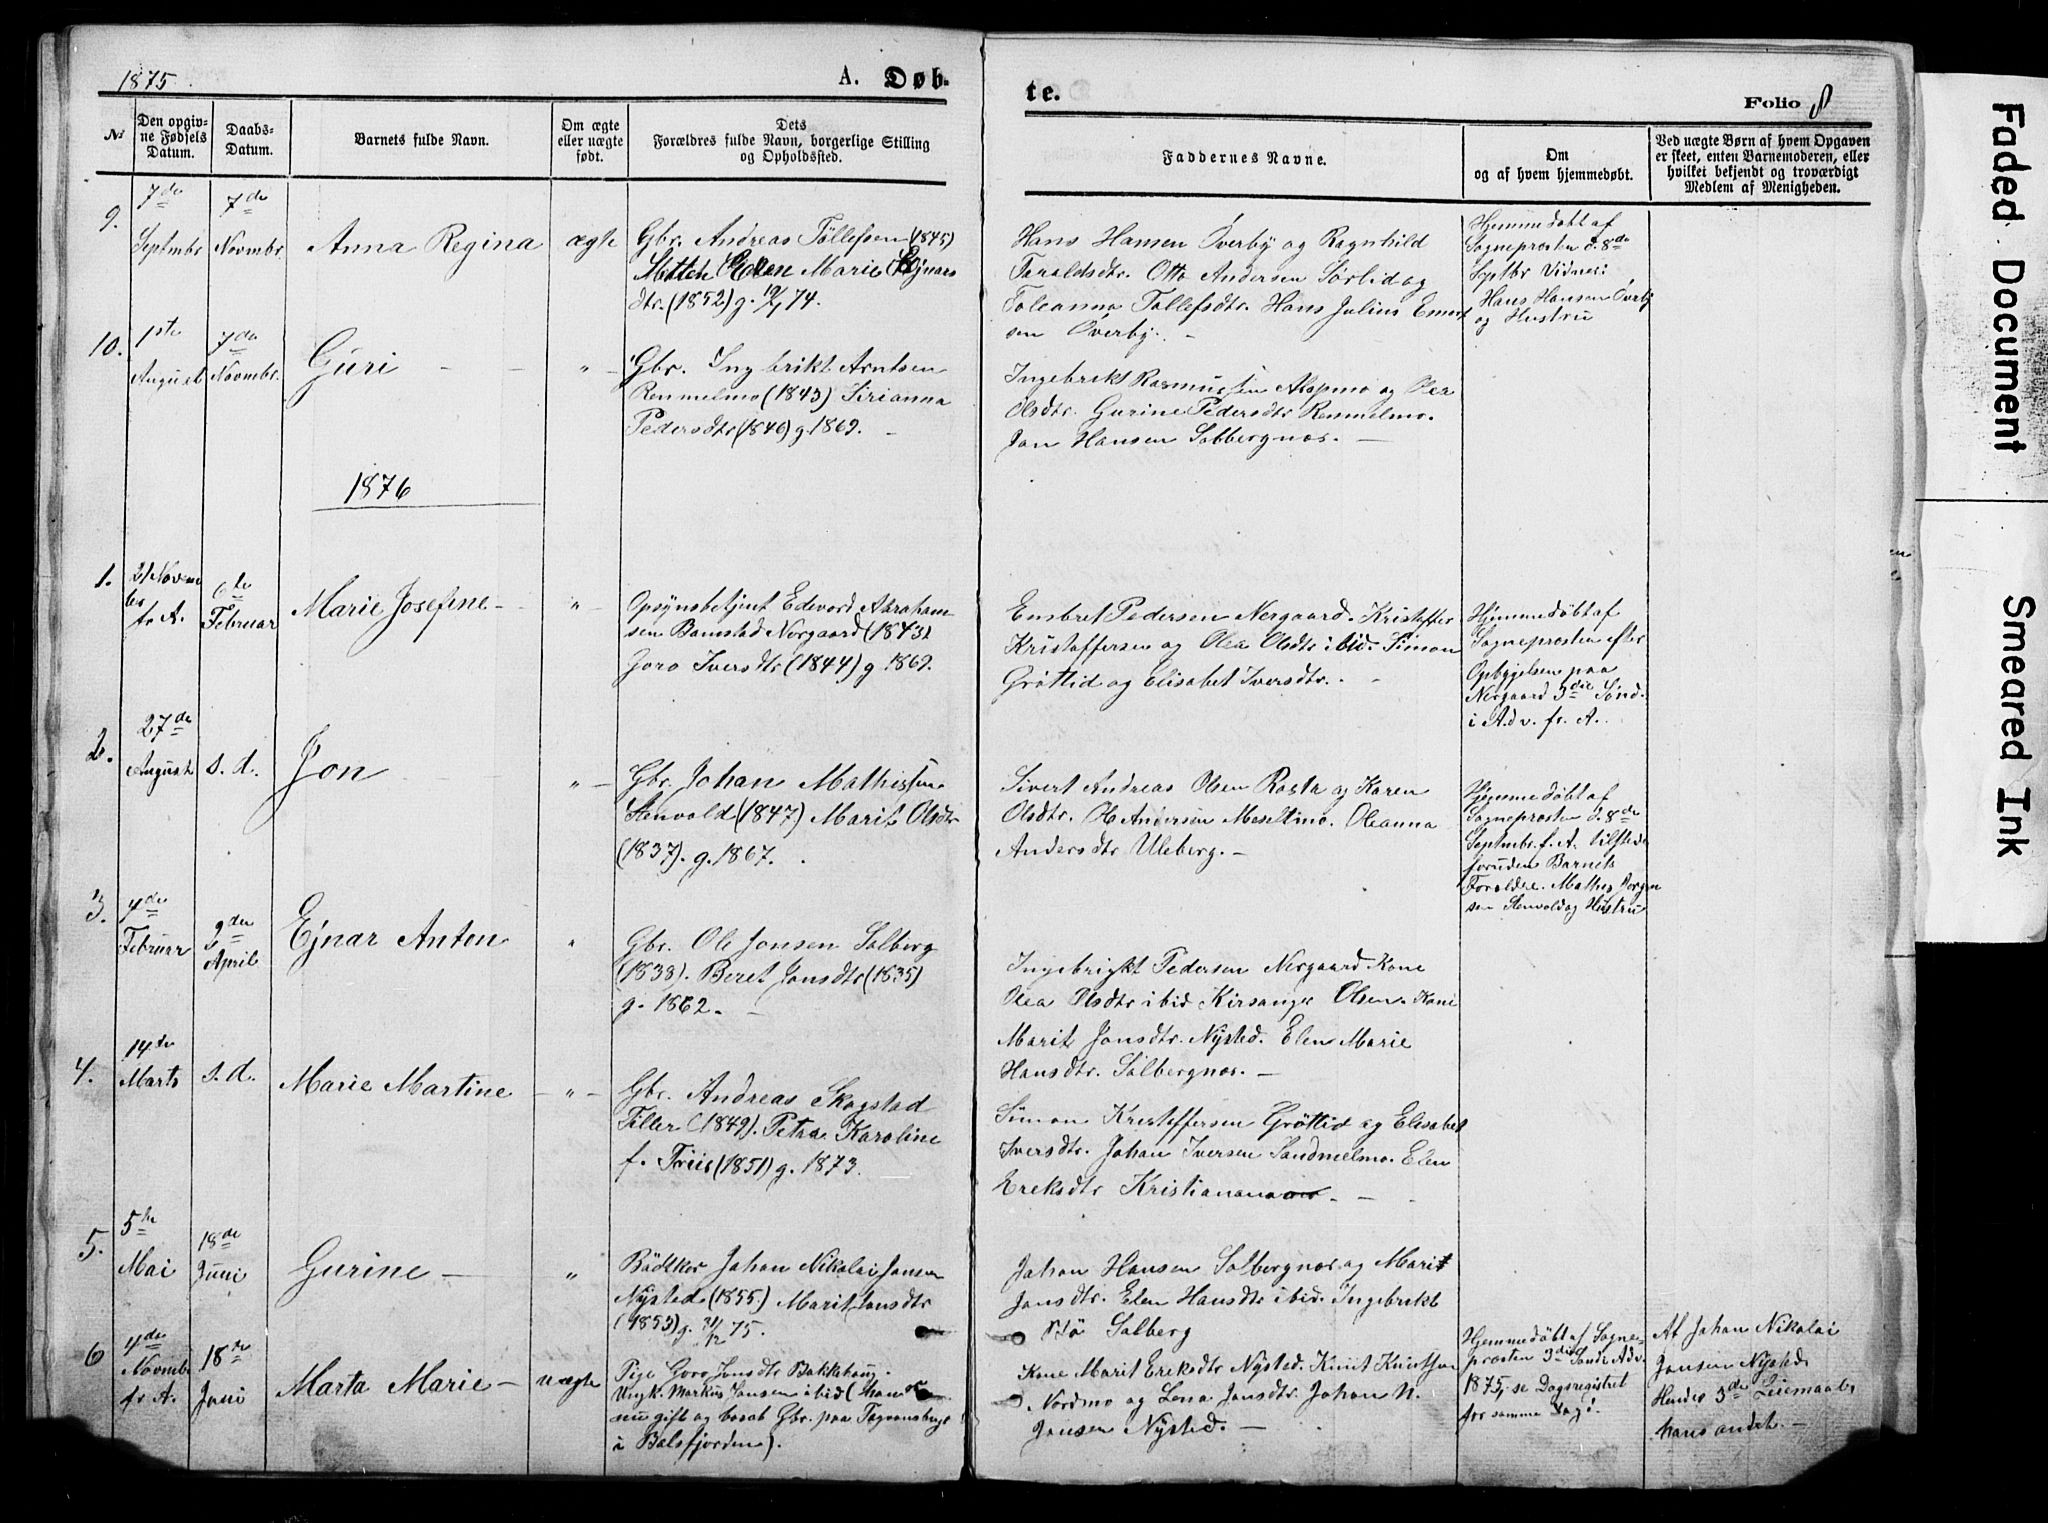 1875
A. Døb-
te.
Folio 8
№
Den opgiv-
ne Fødsels
Datum.
Daabs-
Datum.
Barnets fulde Navn.
Om ægte
eller uægte
født.
Dets
Forældres fulde Navn, borgerlige Stilling
og Opholdssted.
Faddernes Navne.
Om
og af hvem hjemmedøbt.
Ved uægte Børn af hvem Opgaven
er skeet, enten Barnemoderen, eller
hvilket bekjendt og troværdigt
Medlem af Menigheden.
9.
7de
Septmbr
7de
Novmbr.
Anna Regina
ægte
Gbr. Andreas Tollefsen (1845)
Marie Ejnars
dtr. (1852) g. 19/1 74.
Hans Hansen Överby og Ragnhild
Taraldsdtr. Otto Andersen Sörlid og
Toleanna Tollefsdtr. Hans Julius Enert
sen Överby. -
Hjemmedøbt af
Sogneprosten d. 8de
Septbr Vidner:
Hans Hansen Överby
og Hustru
10.
1ste
August
7de
Novmbr.
Guri - -
" -
Gbr. Ingbrikt Arntsen
Rennelmo (1843) Sirianna
Pedersdtr (1846) g. 1869. -
Ingebrikt Rasmussen Alapmo og Olea
Olsdtr. Gurine Pedersdtr Rennelmo.
Jon Hansen Solbergnos. -
1876
1.
21 Novem
ber
fr. A.
6te
Februar
Marie Josefine -
" -
Opsynsbetjent Edevard Abraham
sen Bamstad Norgaard (1843)
Goro Iversdtr (1844) g. 1869.
Embret Pedersen Nergaard. Kristoffer
Kristoffersen og Olea Olsdtr ibid. Simon
Gröttid og Elisabet Iversdtr. -
Hjemmedøbt af
Sogneprosten efter
Opbyggelsen paa
Nergaard 3die Sønd.
i Adv. fr. A.
2.
27de
August
s. d.
Jon - -
" -
Gbr. Johan Mathissen
Stenvold (1847) Marit Olsdtr
(1837). g. 1867.
Sivert Andreas Olsen Rosta og Karen
Olsdtr. O Andersen Moseltmo. Oleanna
Andersdtr Uleberg. -
Hjemmedøbt af
Sogneprosten d. 8de
Septmbr. f. A. tilstede
foruden Barnets
Forældre. Mathis Jorgen
sen Stenvold og Hustru
3.
4de
Februar
9de
April
Ejnar Anton
"
Gbr. Ole Jonsen Solberg
(1838). Beret Jonsdtr (1835)
g. 1862. -
Ingebrigkt Pedersen Nergaard Kone
Olea Olsdtr ibid Olsen. Kone
Marit Jonsdtr. Nysted. Elen Marie
Hansdtr. Solbergnos. -
4.
14de
Marts
s. d.
Marie Martine
- " -
Gbr. Andreas Skogstad
Filler (1849). Petra Karoline
f. Friis (1851) g. 1873.
Simon Kristoffersen Gröttid og Elisabet
Iversdtr. Johan Iversen Sandmelmo. Elen
Ereksdtr - -
5.
5te
Mai
18de
Juni
Gurine -
"
Bödtker Johan Nikolai Jonsen
Nysted (1855.) Marit Jonsdtr
(1853) g. 31/12 75.
Johan Hansen Solbergnos og Marit
Jonsdtr. Elen Hansdtr ibid. Ingebrikt
Bö Solberg
6
4de
Novmbr
fr. A.
18de
Juni
Marta Marie -
uægte
Pige Goro Jonsdtr Bakkehaug.
Ungk. Markus Jonsen ibid (Han er
nu gift og bosat Gbr. paa
i Balsfjorden).
Kone Marit Ereksdtr Nysted. Knut Knutsen
Nordmo og Lena Jonsdtr. Johan N.
Jonsen Nysted. -
Hjemmedøbt af Sogne-
prosten 3die Sønd. i Adv.
1875, se Dagsregistret
for samme Dag!
Af Johan Nikolai
Jonsen Nysted.
Hendes 3de Leiermaal,
hans andet. -
Faded Document
Smeared Ink